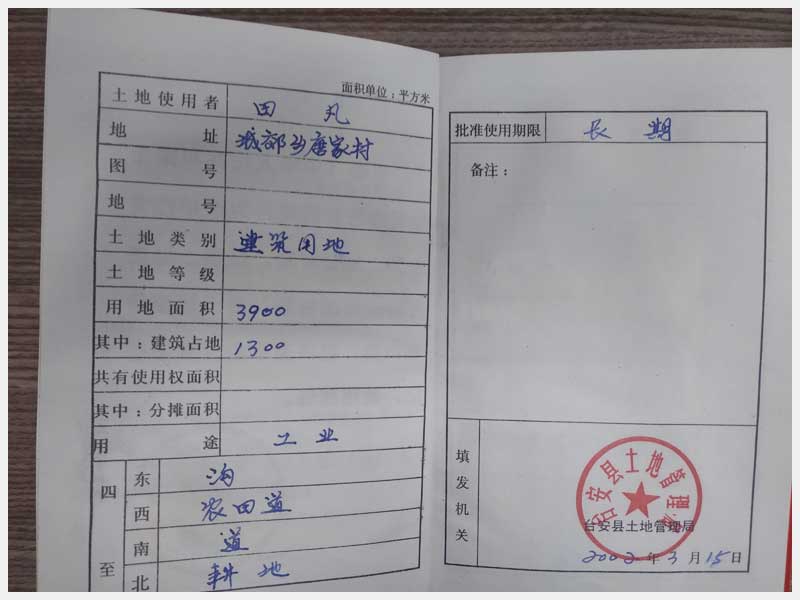 面积单位：平方米
土地使用者 田 凡
地址 城郊乡唐家村
图号
地号
土地类别 建筑用地
土地等级
用地面积 3900
其中：建筑占地 1300
共有使用权面积
其中：分摊面积
用途 工业
四至
东 沟
西 农田道
南 道
北 耕地
批准使用期限 长 期
备注：
填发机关
台安县土地管理局
台安县土地管理局
2002年3月15日